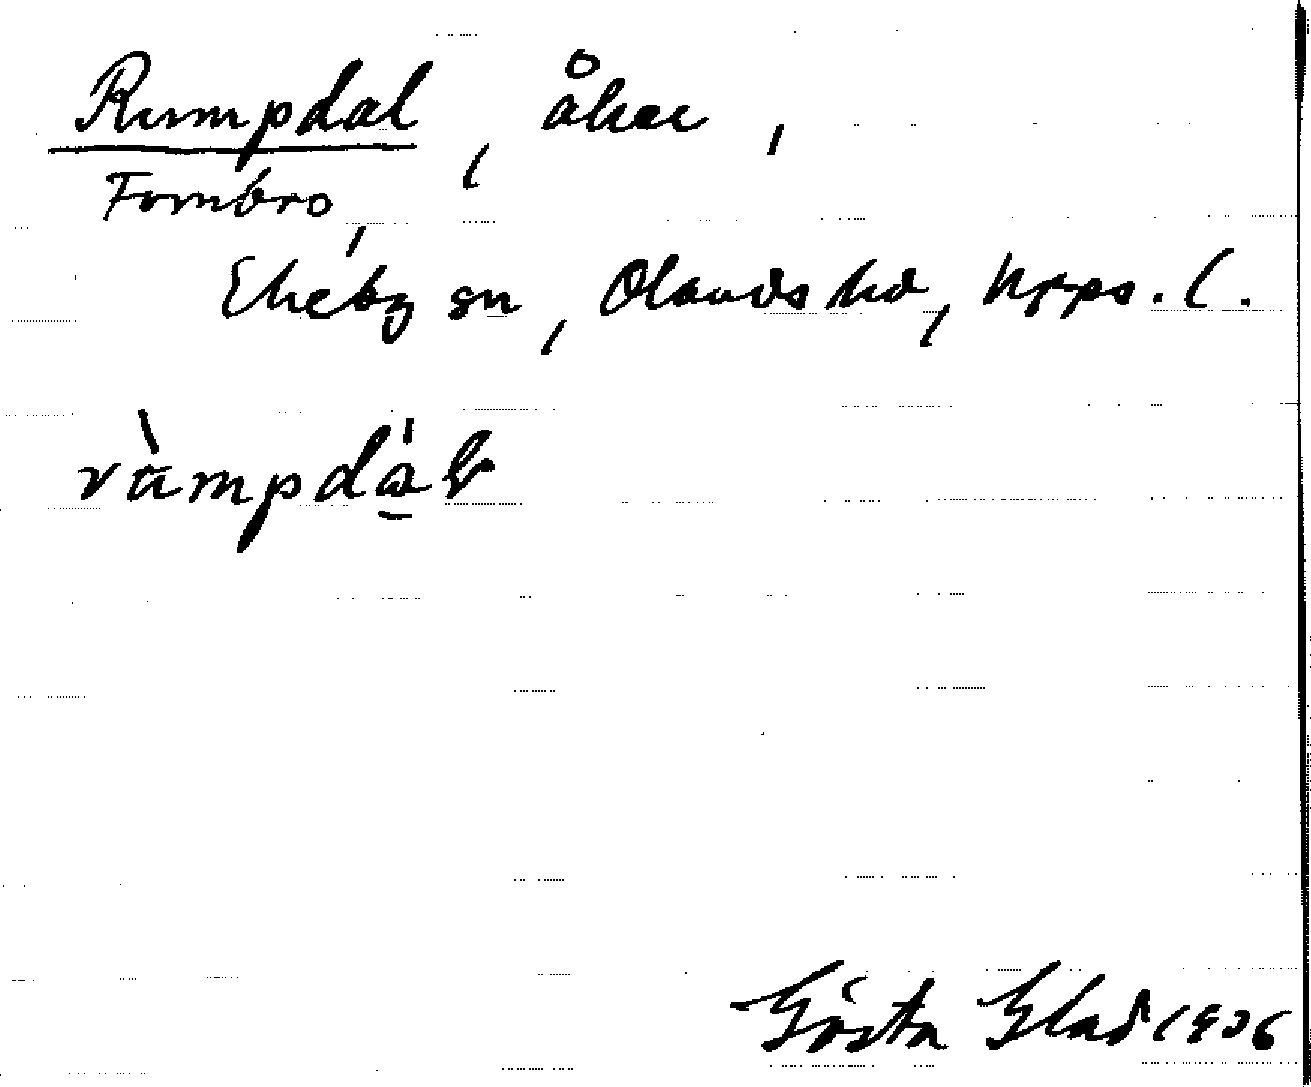 Rumpdal, åker,
Fornbro,
Ekeby sn, Olands hd, Upps. l.
rùmpdàɫ
Gösta Glad 1936